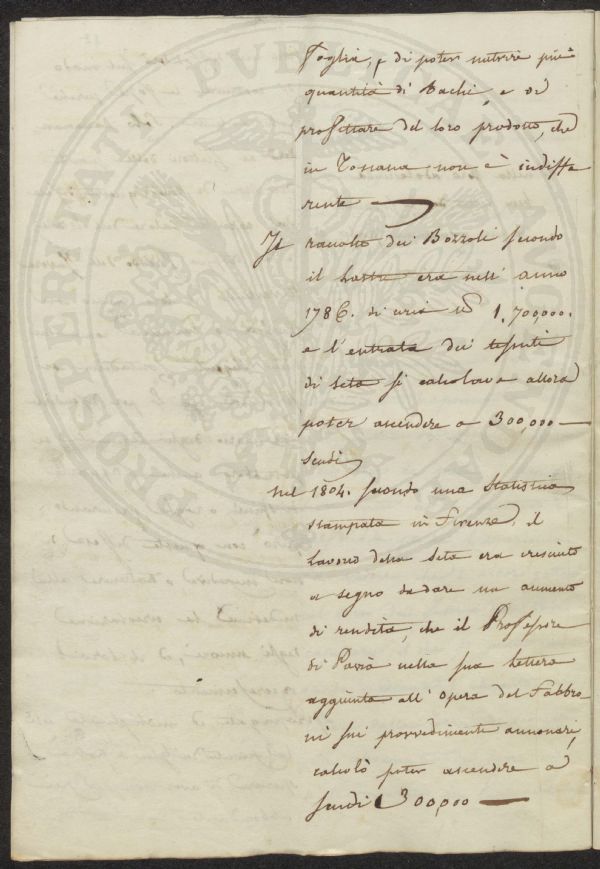 Foglia, e di poter nutrire più
quantità di Bachi, e di
profittare del loro prodotto, che
in Toscana non è indiffe
rente
Il racolto dei Bozzoli secondo
il era nell' anno
1786. di circa 1,700,000.
e l'entrata dei tessuti
di seta si calcolava allora
poter ascendere a 300,000
scudi
nel 1804. secondo una Statistica
stampata in Firenze, il
lavoro della Seta era cresciuto
a segno da dare un aumento
di rendita, che il Professore
di Pavia nella sua lettera
aggiunta all' opera del Fabbro-
ni sui provvedimenti annonari,
calcolò poter ascendere a
scudi 300,000
PROSPERITATI PUBLICAE AUGENDAE